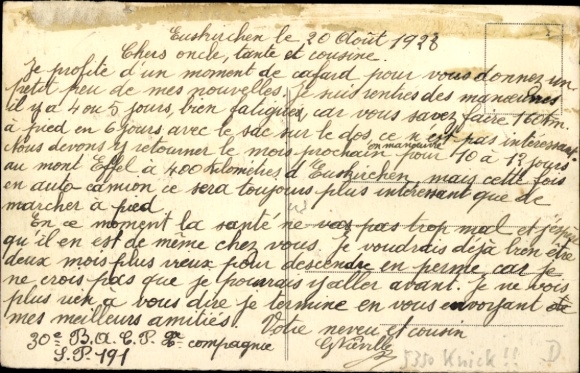 Euskirchen le 20 Août 1928
Chers oncle, tante et cousine.
Je profite d'un moment de cafard pour vous donnez un
petit peu de mes nouvelles. Je suis rentrés des manœuvres
il y a 4 ou 5 jours, bien fatiguées, car vous savez faire 160 km
à pied en 6 jours avec le sac sur le dos, ce n'est pas intéressant.
Nous devons y retourner le mois prochain en manœuvre pour 10 à 12 jours
au mont Effel à 400 kilomètres d'Euskirchen, mais cette fois
en auto-camion ce sera toujours plus intéressant que de
marcher à pied.
En ce moment la santé ne vas pas trop mal et j'espère
qu'il en est de même chez vous. Je voudrais déjà bien être
deux mois plus vieux pour descendre en perme car je
ne crois pas que je pourrais y aller avant. Je ne vois
plus rien a vous dire je termine en vous envoyant
mes meilleurs amitiés. Votre neveu et cousin
30e B.A.C.P. compagnie
S.P. 191
5350 Knick!! D.